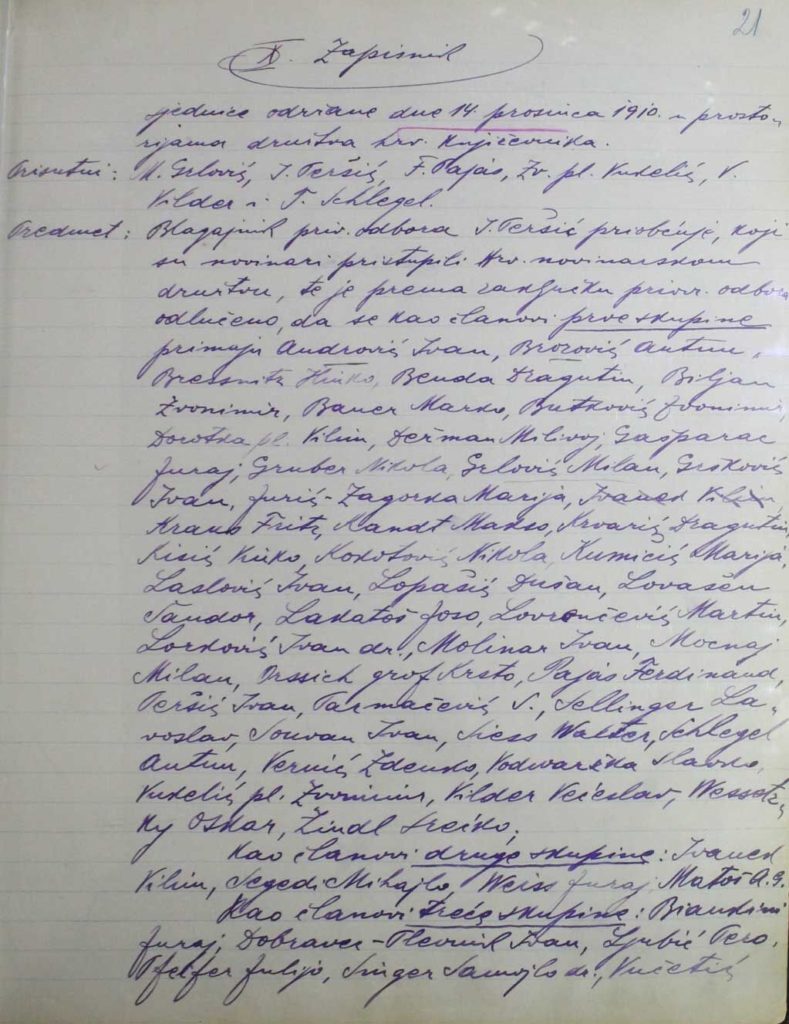 21
X. Zapisnik
sjednice održane dne 14. prosinca 1910. u prosto-
rijama društva hrv. književnika.
Prisutni: M. Grlović, I. Peršić, F. Pajás, Zv. pl. Vukelić, V.
Vilder i T. Schlegel.
Predmet: Blagajnik priv. odbora I. Peršić priobćuje, koji
su novinari pristupili Hrv. novinarskom
društvu, te je prema zaključku privr. odbora
odlučeno, da se kao članovi prve skupine
primaju Andrović Ivan, Brozović Antun,
Bressnitz Hinko, Benda Dragutin, Biljan
Zvonimir, Bauer Marko, Butković Zvonimir,
Dorotka pl. Vilim, Dežman Milivoj, Gašparac
Juraj, Gruber Nikola, Grlović Milan, Gršković
Ivan, Jurić-Zagorka Marija, Ivanek Vilim,
Kraus Fritz, Kandt Makso, Krvarić Dragutin,
Kisić Vinko, Kokotović Nikola, Kumičić Marija,
Laslović Ivan, Lopašić Dušan, Lovašen
Šandor, Lakatoš Joso, Lovrenčević Martin,
Lorković Ivan dr., Molinar Ivan, Mocnaj
Milan, Orssich grof Krsto, Pajás Ferdinand,
Peršić Ivan, Parmačević S., Sellinger La-
voslav, Souvan Ivan, Siess Walter, Schlegel
Antun, Vernić Zdenko, Vodvarška Slavko,
Vukelić pl. Zvonimir, Vilder Većeslav, Wessetz-
ky Oskar, Žindl Srećko.
Kao članovi druge skupine: Ivanek
Vilim, Segedi Mihajlo, Weiss Juraj, Matoš A. G.
Kao članovi treće skupine: Biankini
Juraj, Dobravec-Plevnik Ivan, Ljubić Pero,
Pfeifer Julijo, Singer Samojlo dr., Vučetić